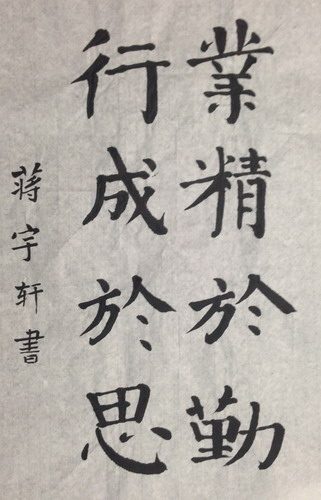 業精於勤
行成於思
蒋宇轩書